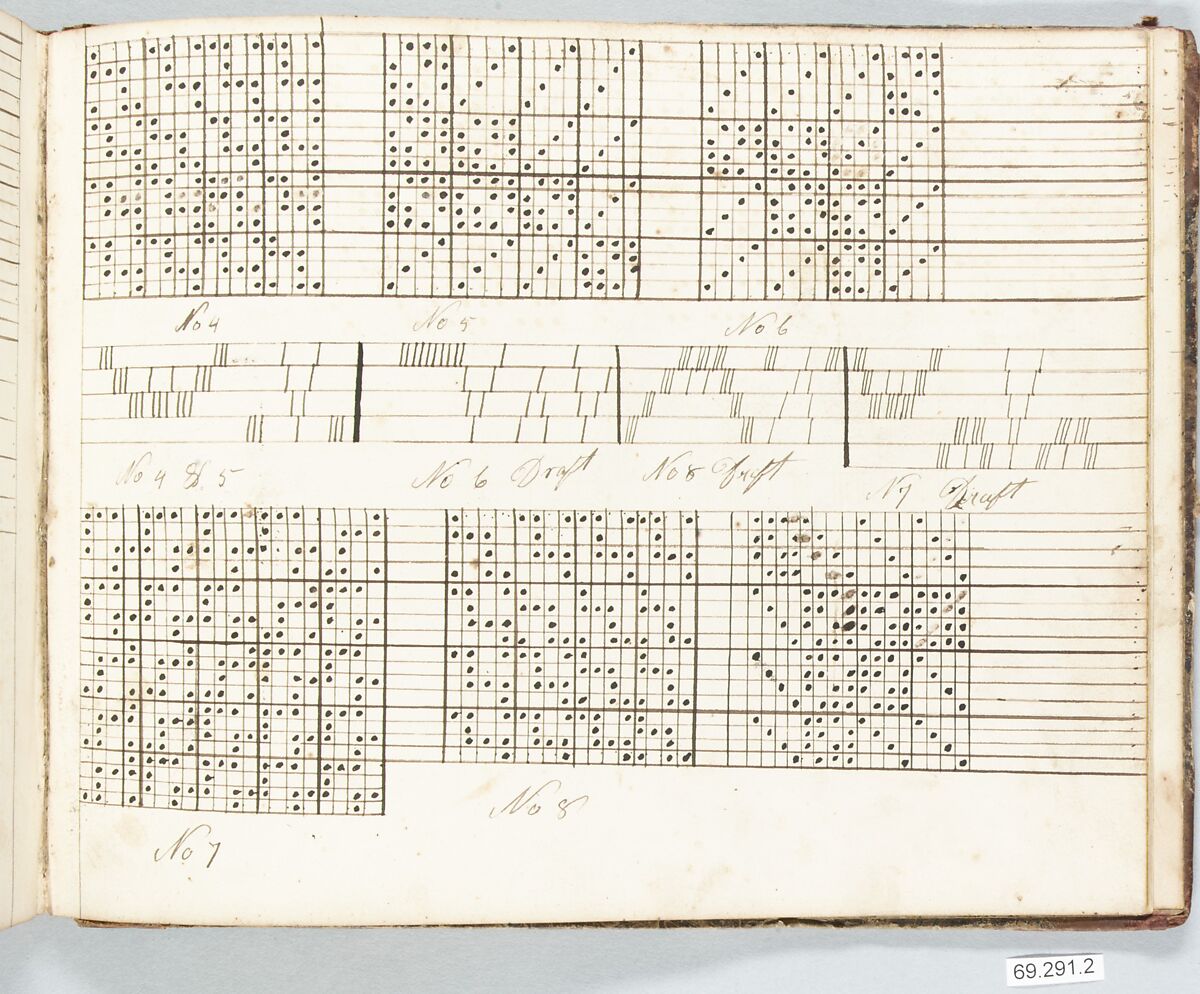 No 4 No 5 No 6
No 4 & 5 No 6 Draft No 8 Draft N 7 Draft
No 8
No 7
69.291.2